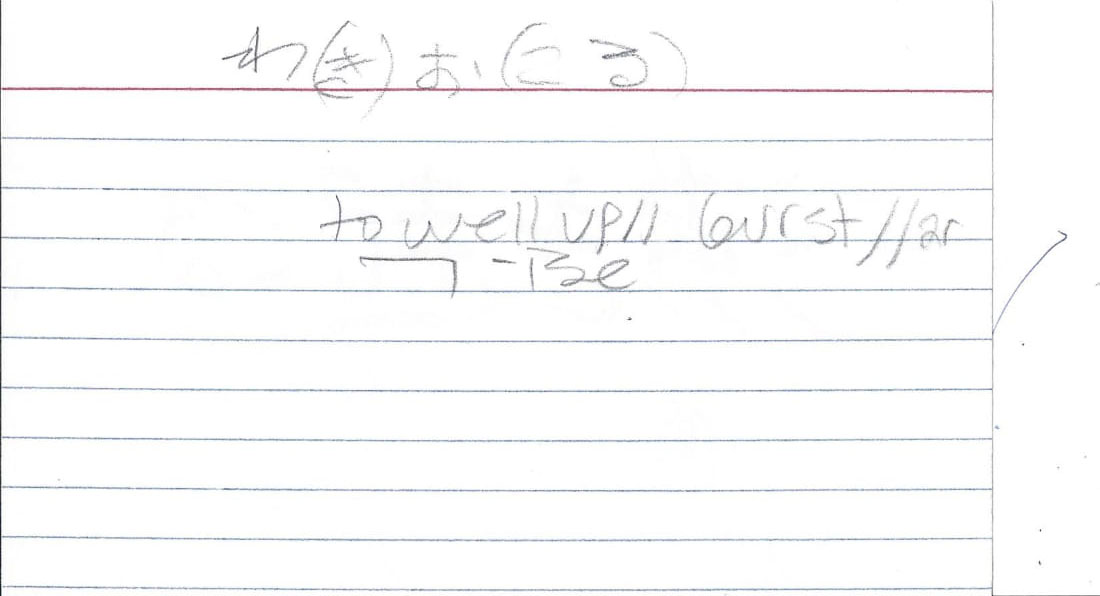 わ(き)お(こる)
to well up// burst//ar
-ise